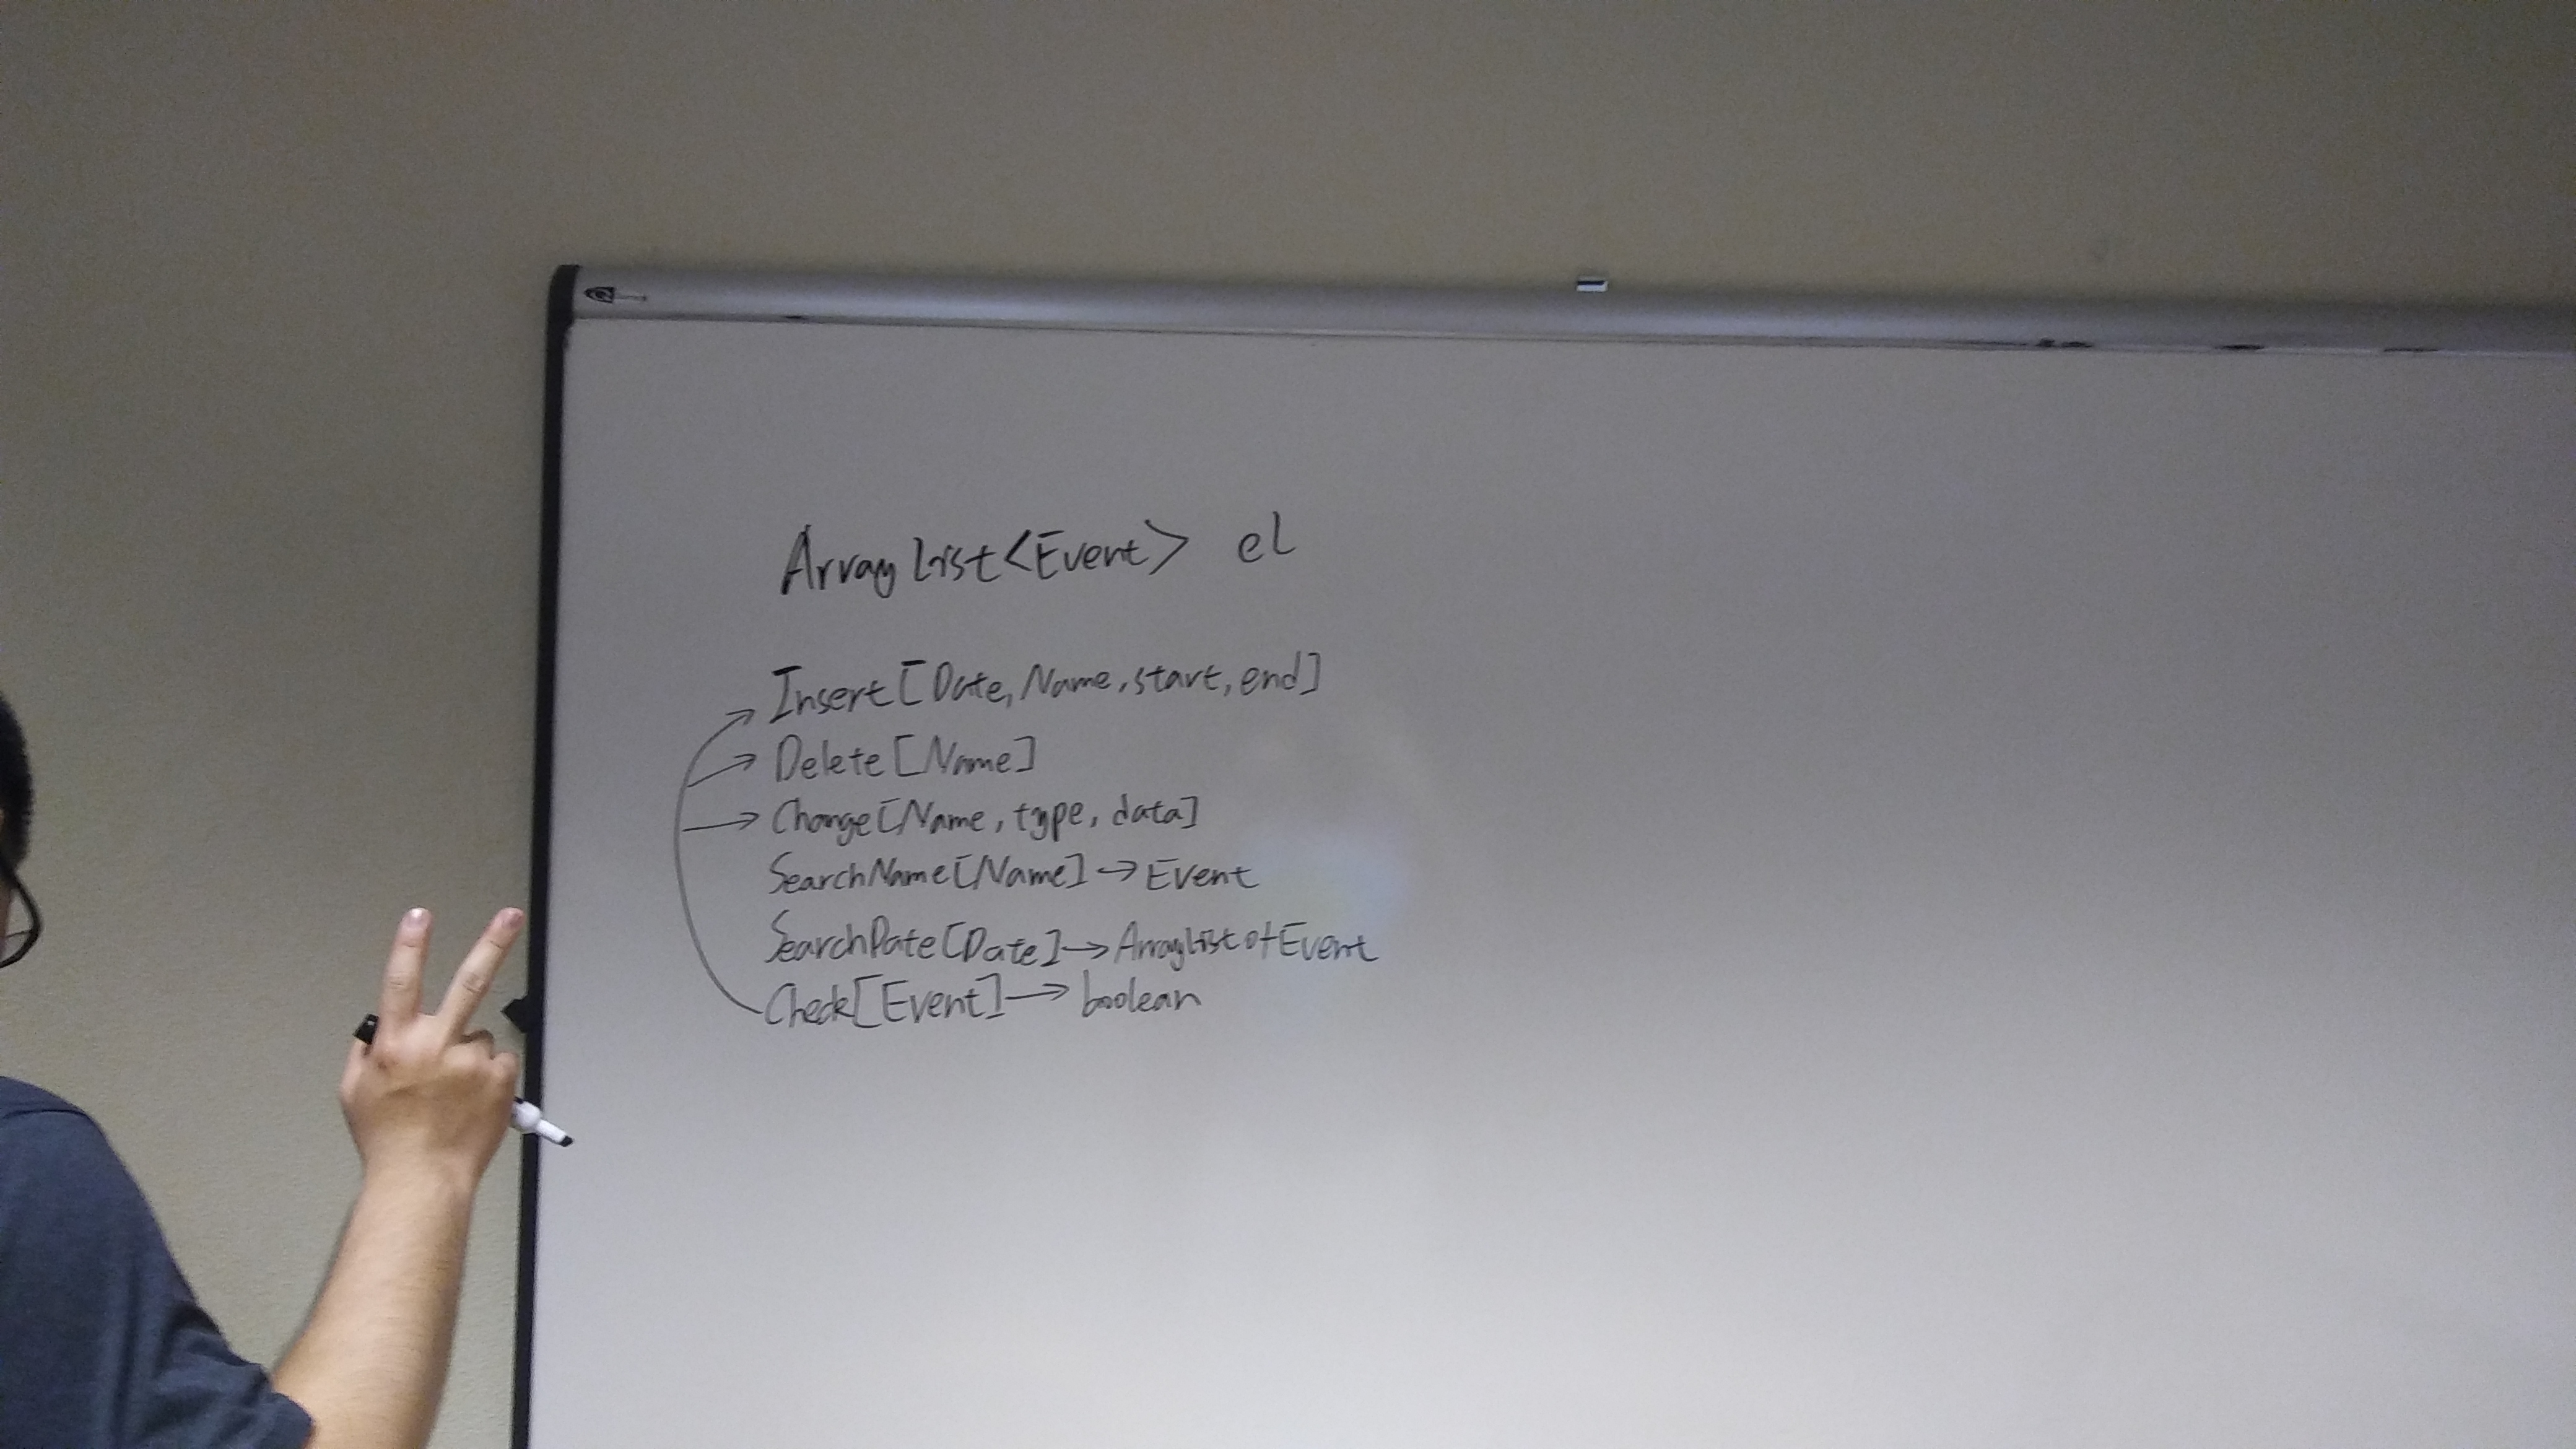 ArrayList<Event> el
Insert[Date, Name, start, end]
Delete[Name]
Change[Name, type, data]
SearchName[Name] → Event
SearchDate[Date] → ArrayList of Event
Check[Event] → boolean